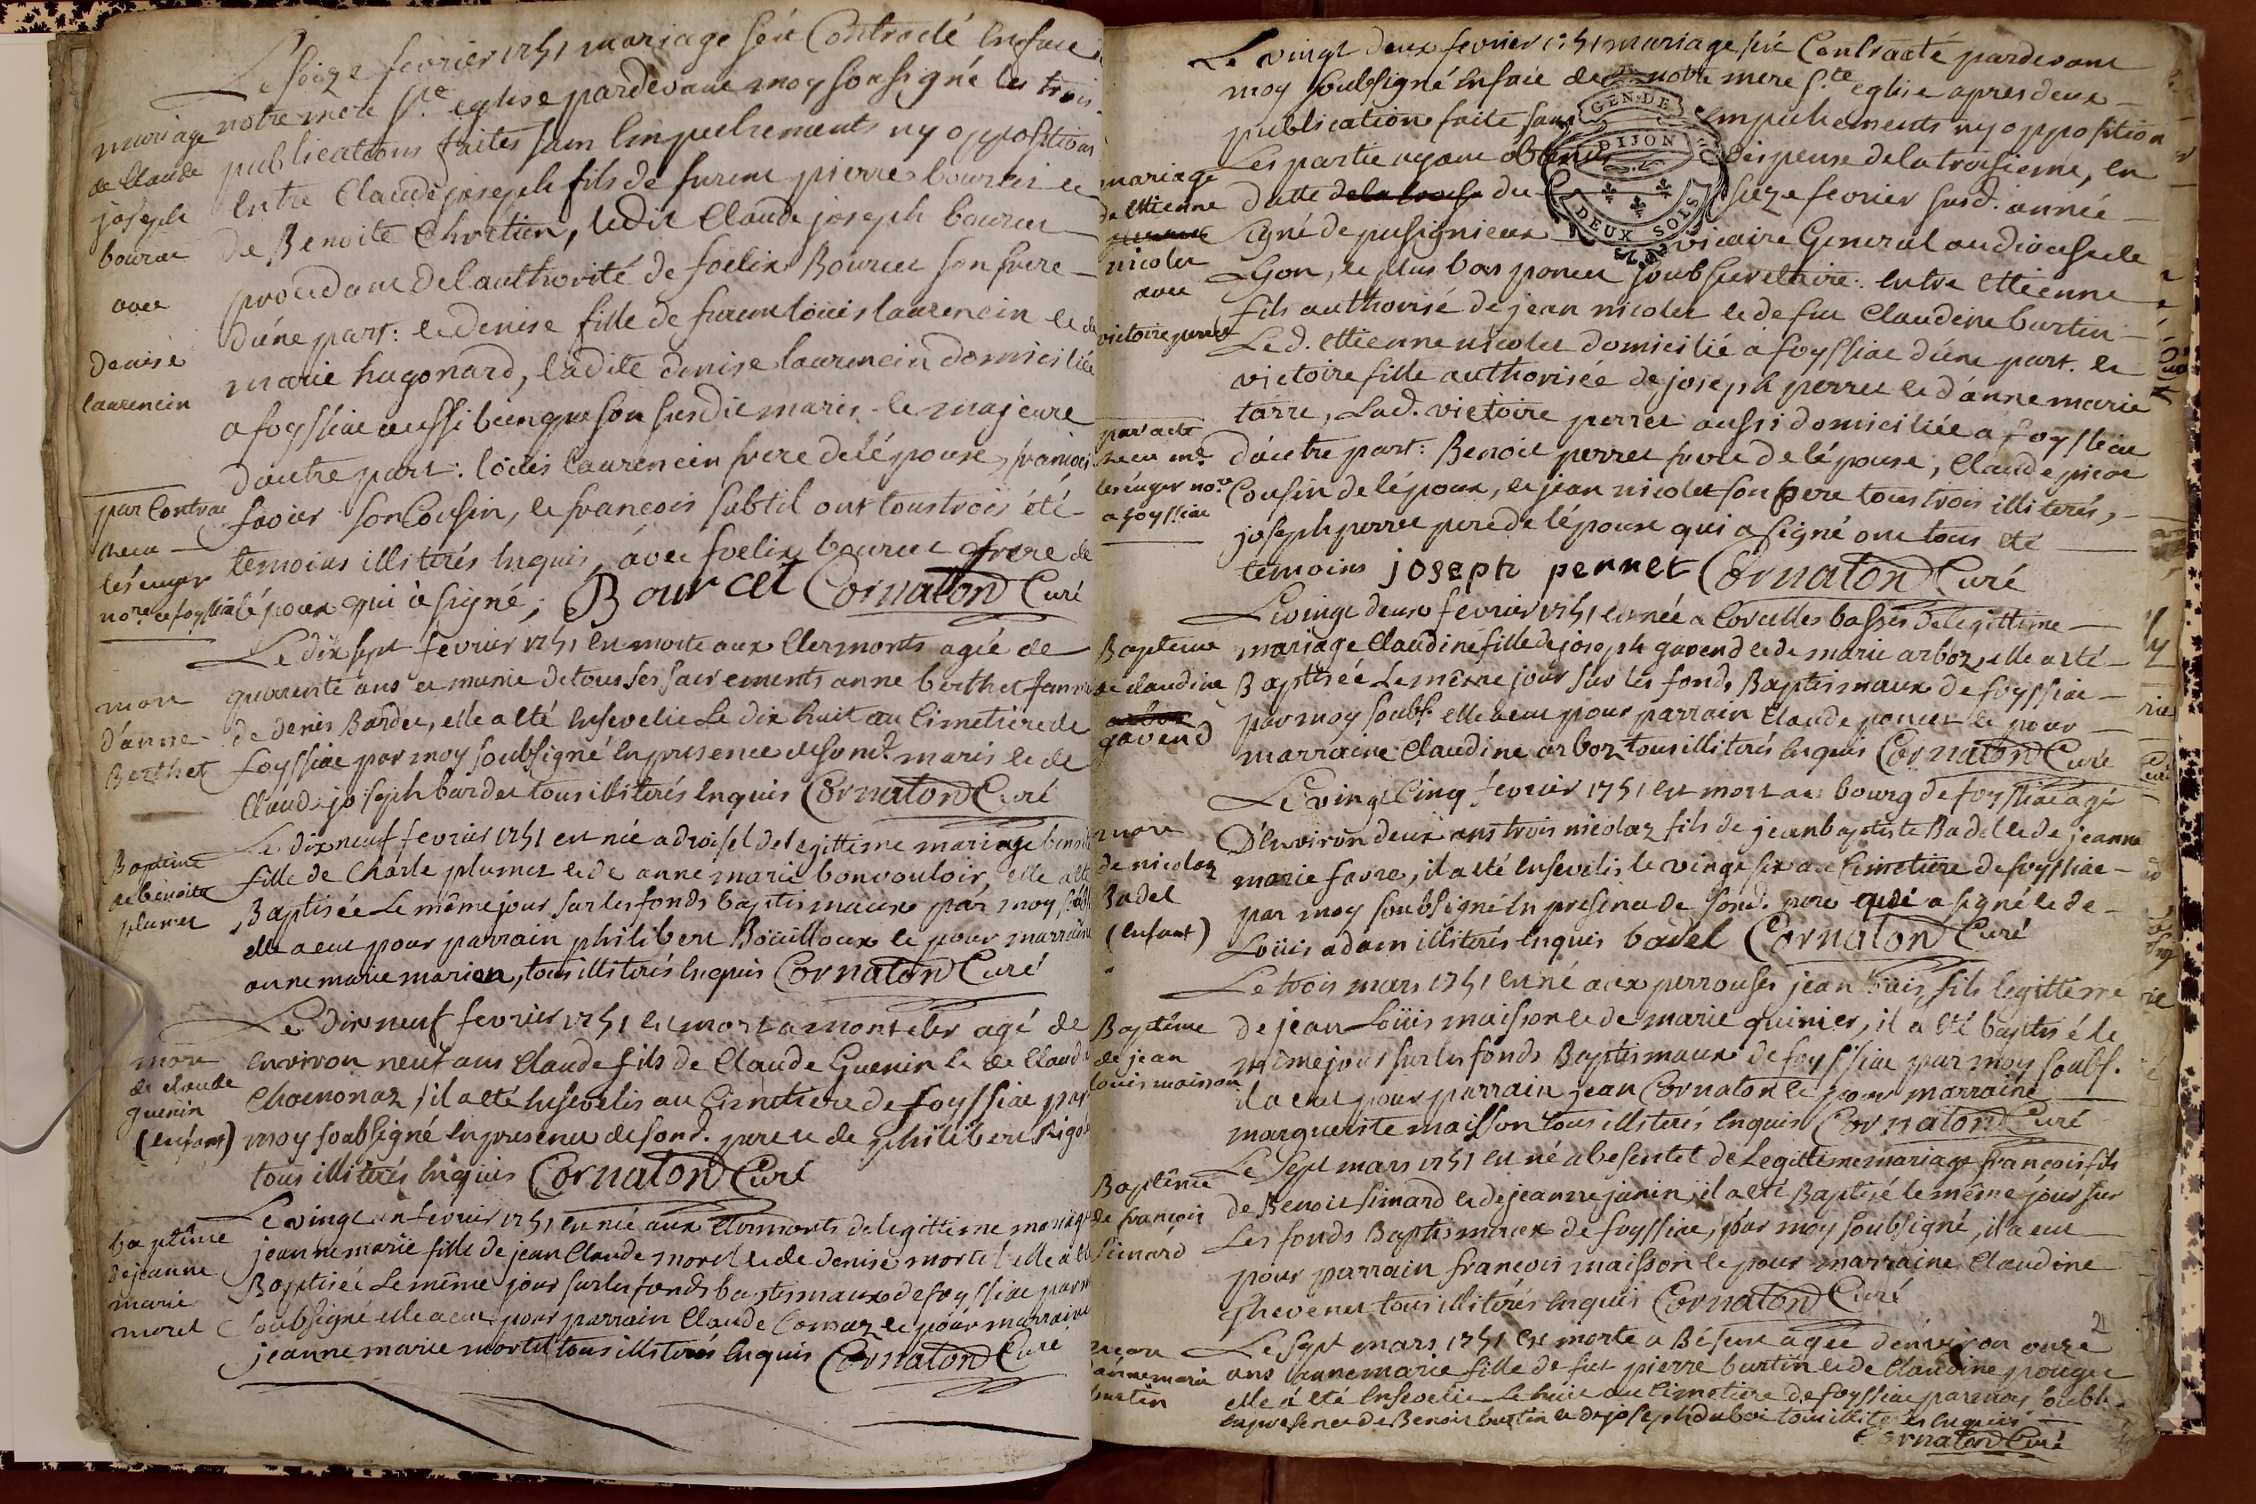 Le seize fevrier 1751 mariage f๋ut Contracté En face
notre mere Ste. eglise pardevant moy sousigné les trois
publications faites sans Empechements ny oppositions
Entre Claude joseph fils de furent pierre bourcet et
de Benoite Chretien, ledit Claude joseph bourcet
procedant de l'authorité de foelix Bourcet son frere
d'une part: et denise fille de furent loüis laurencin et de
marie hugonard, ladite denise laurencin domiciliée
a foyssiae aussi bien que son susdit maris et majeure
d'autre part: loüis laurencin frere de lépouse, francois
favier son Cousin, et francois subtil ont tous trois été
temoins illiterés Enquis, avec foelix bourcet frere de
lépoux qui a signé; Bourcet Cornaton Curé
mariage
de Claude
joseph
bourcet
avec
denise
laurencin
par Contrat
recu
lésenger
nore. a foyssiae
Le dix sept fevrier 1751 est morte aux Clermonts agée de
quarente ans et munie de tous ses sacrements anne berthet femme
de denis Bardet, elle a été Ensevelie Le dix huit au Cimetiere de
foyssiae par moy soubsigné En presence de sond. maris et de
Claude joseph bardet tous illiterés Enquis Cornaton Curé
mort
d'anne
Berthet
Le dix neuf fevrier 1751 est née a droisel de legittime mariage benoite
fille de Charle plumet et de anne marie bonvouloir, elle a été
Baptisée Le même jour sur les fonds baptismaux par moy soubs
elle a eut pour parrain philibert Boüilloux et pour marraine
anne marie marion, tous illiterés Enquis Cornaton Curé
Baptême
de benoite
plumet
Le dix neuf fevrier 1751 est mort a monteler agé de
Environ neuf ans Claude fils de Claude Guenin et de Claud
Chaemonaz, il a été Ensevelis au Cimetiere de foyssiae par
moy soubsigné En presence de sond. pere et de philibert Rigo
tous illiterés Enquis Cornaton Curé
mort
de claude
guenin
(enfant)
Le vingt un fevrier 1751 est née aux Clermonts de legittime mariage
jeanne marie fille de jean Claude morel et de denise mortel elle a été
Baptisée Le même jour sur les fonds baptismaux de foyssiae par m
soubsigné elle a eut pour parrain Claude Comaz et pour marraine
jeanne marie mortel tous illiterés Enquis Cornaton Curé
baptême
de jeanne
marie
morel
Le vingt deux fevrier 1751 mariage fut Contracté pardevant
moy soubsigné En face de notre mere Ste. eglise apres deux
publication faite sans Empechements ny opposition
Les partie ayant obtenus dispense de la troisieme, en
datte de la troise du seize fevrier susd. année
signé de pusignieux vicaire General au diocese de
Lyon, et plus bas poncet soubsecretaire. Entre Ettienne
fils authorisé de jean nicolet et de fut Claudine burtin
Led. ettienne nicolet domicilié a foyssiae d'une part. et
victoire fille authorisée de joseph perret et d'anne marie
tarre, Lad. victoire perret aussi domiciliée a foyssiae
d'autre part: Benoit perret frere de lépouse, Claude picot
Cousin de lépoux, et jean nicolet son pere tous trois illiterés,
joseph perret pere de lépouse qui a signé ont tous été
temoins joseph perret Cornaton Curé
GEN. DE
DIJON
DEUX SOLS
mariage
de ettienne
nicolet
avec
victoire perret
par acte
recu me.
lésenger nore.
a foyssiae
Le vingt deux fevrier 1751 est née a Corcelles basses de legittime
mariage Claudine fille de joseph gavend et de marie arboz, elle a été
Baptisée Le même jour sur les fonds Baptismaux de foyssiae
par moy soubs. elle a eut pour parrain Claude poncet et pour
marraine Claudine arboz tous illiterés Enquis Cornaton Curé
Baptême
de claudine
arboz
gavend
Le vingt Cinq fevrier 1751 est mort au bourg de foyssiae agé
D'Environ deux ans trois nicolaz fils de jean baptiste Badel et de jeanne
marie favre, il a été Ensevelis le vingt six au Cimetiere de foyssiae
par moy soubsigné En presence de sond. pere qui a signé et de
Loüis adam illiterés Enquis badel Cornaton Curé
mort
de nicolaz
Badel
(enfant)
Le trois mars 1751 est né aux perrouses jean loüis fils legittime
de jean Loüis maisson et de marie quinier, il a été baptisé le
même jour sur les fonds Baptismaux de foyssiae par moy soubs.
il a eut pour parrain jean Cornaton et pour marraine
marguerite maisson tous illiterés Enquis Cornaton Curé
Baptême
de jean
loüis maisson
Le Sept mars 1751 est né a besentet de Legittime mariage francois fils
de Benoit simard et de jeanne janin, il a été Baptisé le même jour sur
Les fonds Baptismaux de foyssiae, par moy soubsigné, il a eut
pour parrain francois maisson et pour marraine Claudine
thevenet tous illiterés Enquis Cornaton Curé
Baptême
de francois
simard
21
Le Sept mars 1751 est morte a Béseut agée d'environ onze
ans anne marie fille de fut pierre burtin et de Claudine pouget
elle a été Ensevelie Le huit au Cimetiere de foyssiae par moy soubs.
En presence de Benoit burtin et de joseph duboi tous illiterés Enquis
Cornaton Curé
mort
d'anne marie
burtin